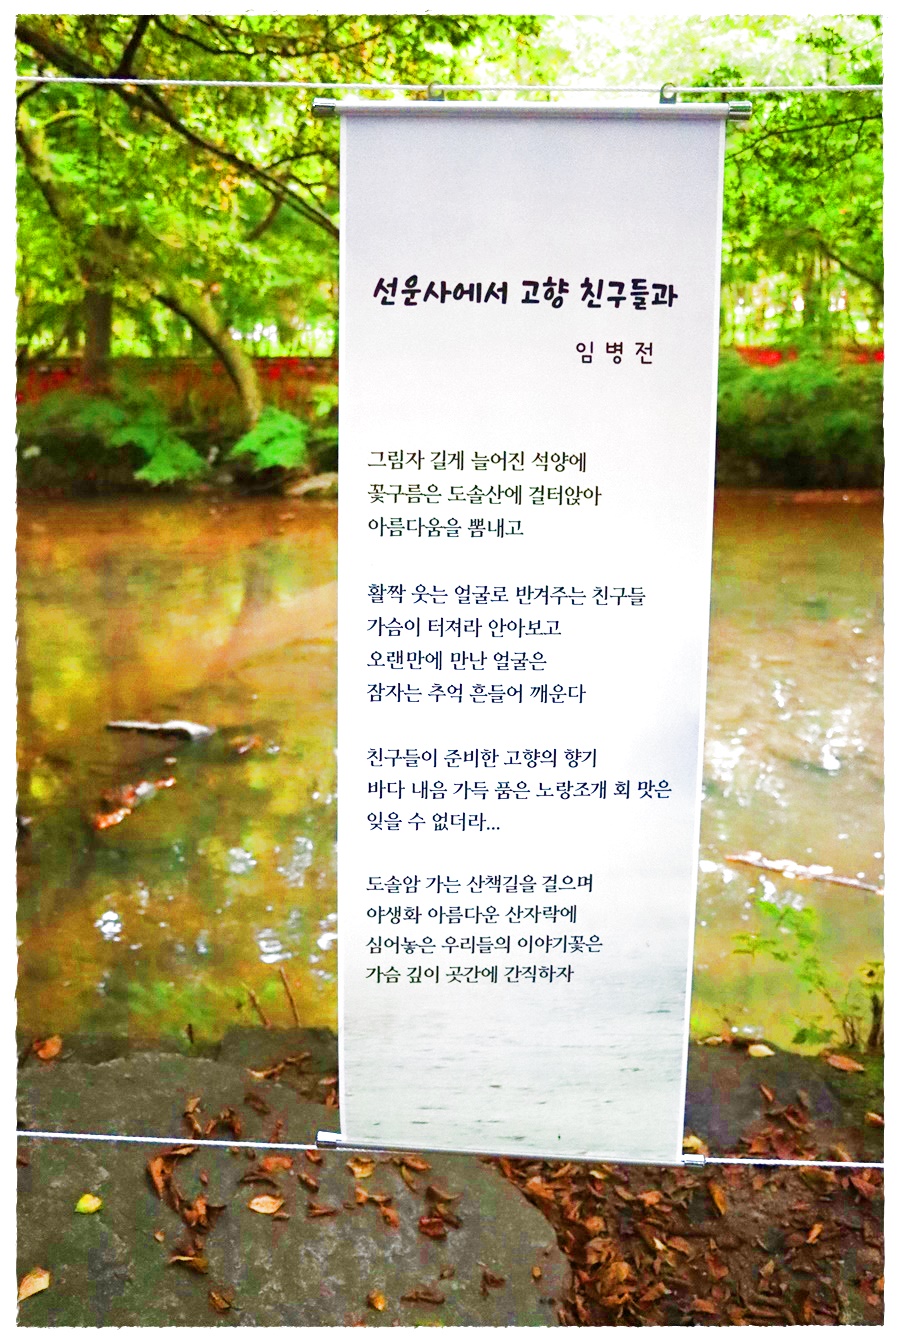 선운사에서 고향 친구들과
임병전
그림자 길게 늘어진 석양에
꽃구름은 도솔산에 걸터앉아
아름다움을 뽐내고
활짝 웃는 얼굴로 반겨주는 친구들
가슴이 터져라 안아보고
오랜만에 만난 얼굴은
잠자는 추억 흔들어 깨운다
친구들이 준비한 고향의 향기
바다 내음 가득 품은 노랑조개 회 맛은
잊을 수 없더라...
도솔암 가는 산책길을 걸으며
야생화 아름다운 산자락에
심어놓은 우리들의 이야기꽃은
가슴 깊이 곳간에 간직하자